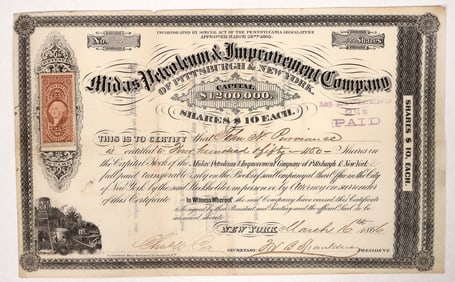 INCORPORATED BY SPECIAL ACT OF THE PENNSYLVANIA LEGISLATURE
APPROVED MARCH 22ND 1865.
No.
Shares
Midas Petroleum & Improvement Company
OF PITTSBURGH & NEW YORK.
CAPITAL
$1200.000.
SHARES $10 EACH.
PAID
THIS IS TO CERTIFY that John
is entitled to Four hundred fifty 450 Shares in
the Capital Stock of the Midas Petroleum & Improvement Company of Pittsburgh & New York
full paid transferable only on the Books of said Company at their Office in the City
of New York by the said Stockholder in person or by Attorney on surrender
of this Certificate
In Witness Whereof the said Company have caused this Certificate
to be signed by their President and Secretary and the official Seal to be
NEW YORK March 16th 1866
SECRETARY
PRESIDENT
SHARES $10, EACH.